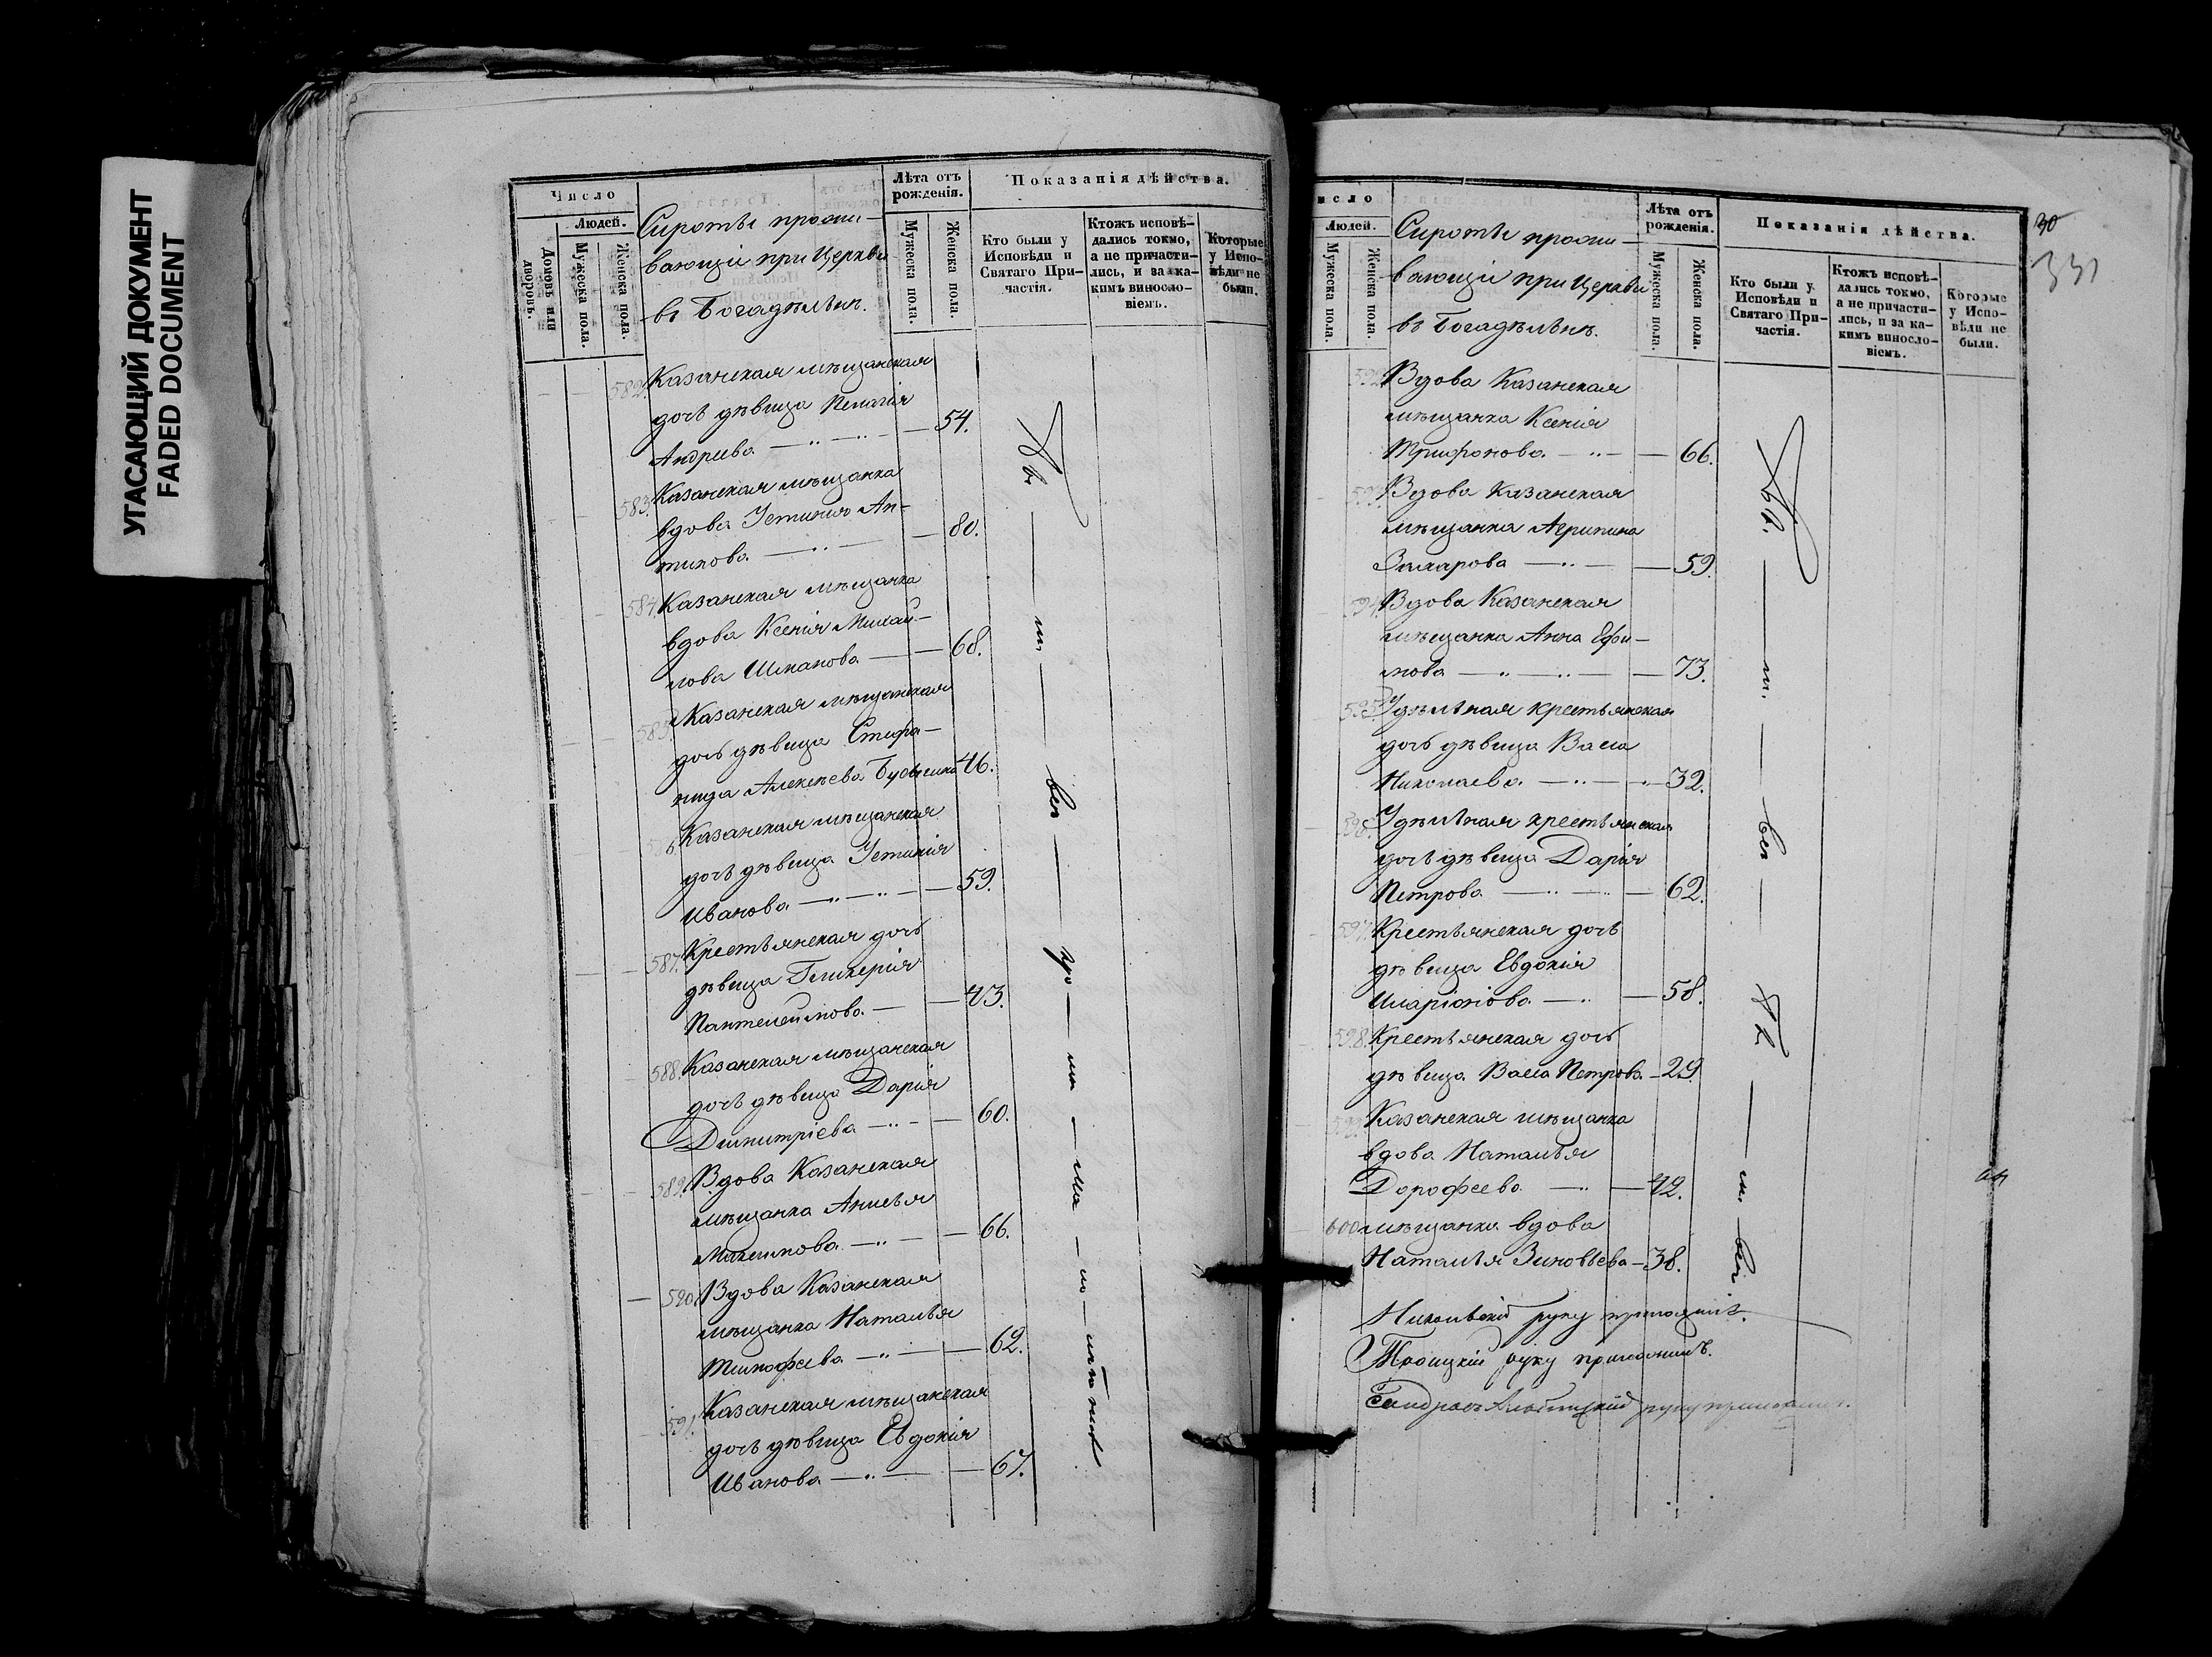 УГАСАЮЩИЙ ДОКУМЕНТ
FADED DOCUMENT
Число
Людей.
Домовъ или дворовъ.
Мужеска пола.
Женска пола.
Сироты прожи-
вающіе при Церкви
въ Богадѣльнѣ.
Лѣта отъ рожденія.
Мужеска пола.
Женска пола.
Показанія дѣйства.
Кто были у Исповѣди и Святаго При-частія.
Ктожъ исповѣ-дались токмо, а не причасти-лись, и за ка-кимъ винословіемъ.
Которые у Испо-вѣди не были.
582. Казанская мѣщанская
дочь дѣвица Пелагія
Андреева 54.
583. Казанская мѣщанка
вдова Устинія Ан-
типова 80.
584. Казанская мѣщанка
вдова Ксенія Михай-
лова 68.
585. Казанская мѣщанская
дочь дѣвица Стефа-
нида Алексѣева 46.
586. Казанская мѣщанская
дочь дѣвица Устинія
Иванова 59.
587. Крестьянская дочь
дѣвица Гликерія
Пантелеймова 43.
588. Казанская мѣщанская
дочь дѣвица Дарія
Димитріева 60.
589. Вдова Казанская
мѣщанка Анисья
Максимова 66.
590. Вдова Казанская
мѣщанка Наталья
Тимофеева 62.
591. Казанская мѣщанская
дочь дѣвица Евдокія
Иванова 67.
30
331
Число
Людей.
Мужеска пола.
Женска пола.
Сироты прожи-
вающіе при Церкви
въ Богадѣльнѣ.
Лѣта отъ рожденія.
Мужеска пола.
Женска пола.
Показанія дѣйства.
Кто были у Исповѣди и Святаго При-частія.
Ктожъ исповѣ-дались токмо, а не причасти-лись, и за ка-кимъ винословіемъ.
Которые у Испо-вѣди не были.
592. Вдова Казанская
мѣщанка Ксенія
Трифонова 66.
593. Вдова Казанская
мѣщанка Агрипина
Захарова 59.
594. Вдова Казанская
мѣщанка Анна Ефи-
мова 73.
595. Удѣльная крестьянская
дочь дѣвица Васса
Николаева 32.
596. Удѣльная крестьянская
дочь дѣвица Дарія
Петрова 62.
597. Крестьянская дочь
дѣвица Евдокія
Иларіонова 58.
598. Крестьянская дочь
дѣвица Васса Петрова 29.
599. Казанская мѣщанка
вдова Наталья
Дорофеева 42.
600 мѣщанка вдова
Наталья Зиновьева 38.
Никольскій руку приложилъ.
Троицкій руку приложилъ.
руку приложилъ.